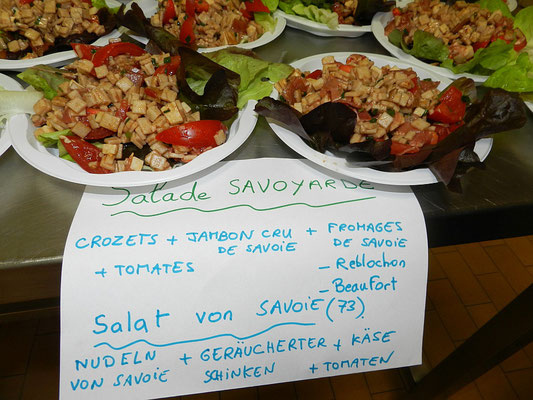 Salade SAVOYARDE
CROZETS + JAMBON CRU + FROMAGES
DE SAVOIE DE SAVOIE
+ TOMATES - Reblochon
- Beaufort
Salat von SAVOIE (73)
NUDELN + GERÄUCHERTER + KÄSE
VON SAVOIE SCHINKEN + TOMATEN